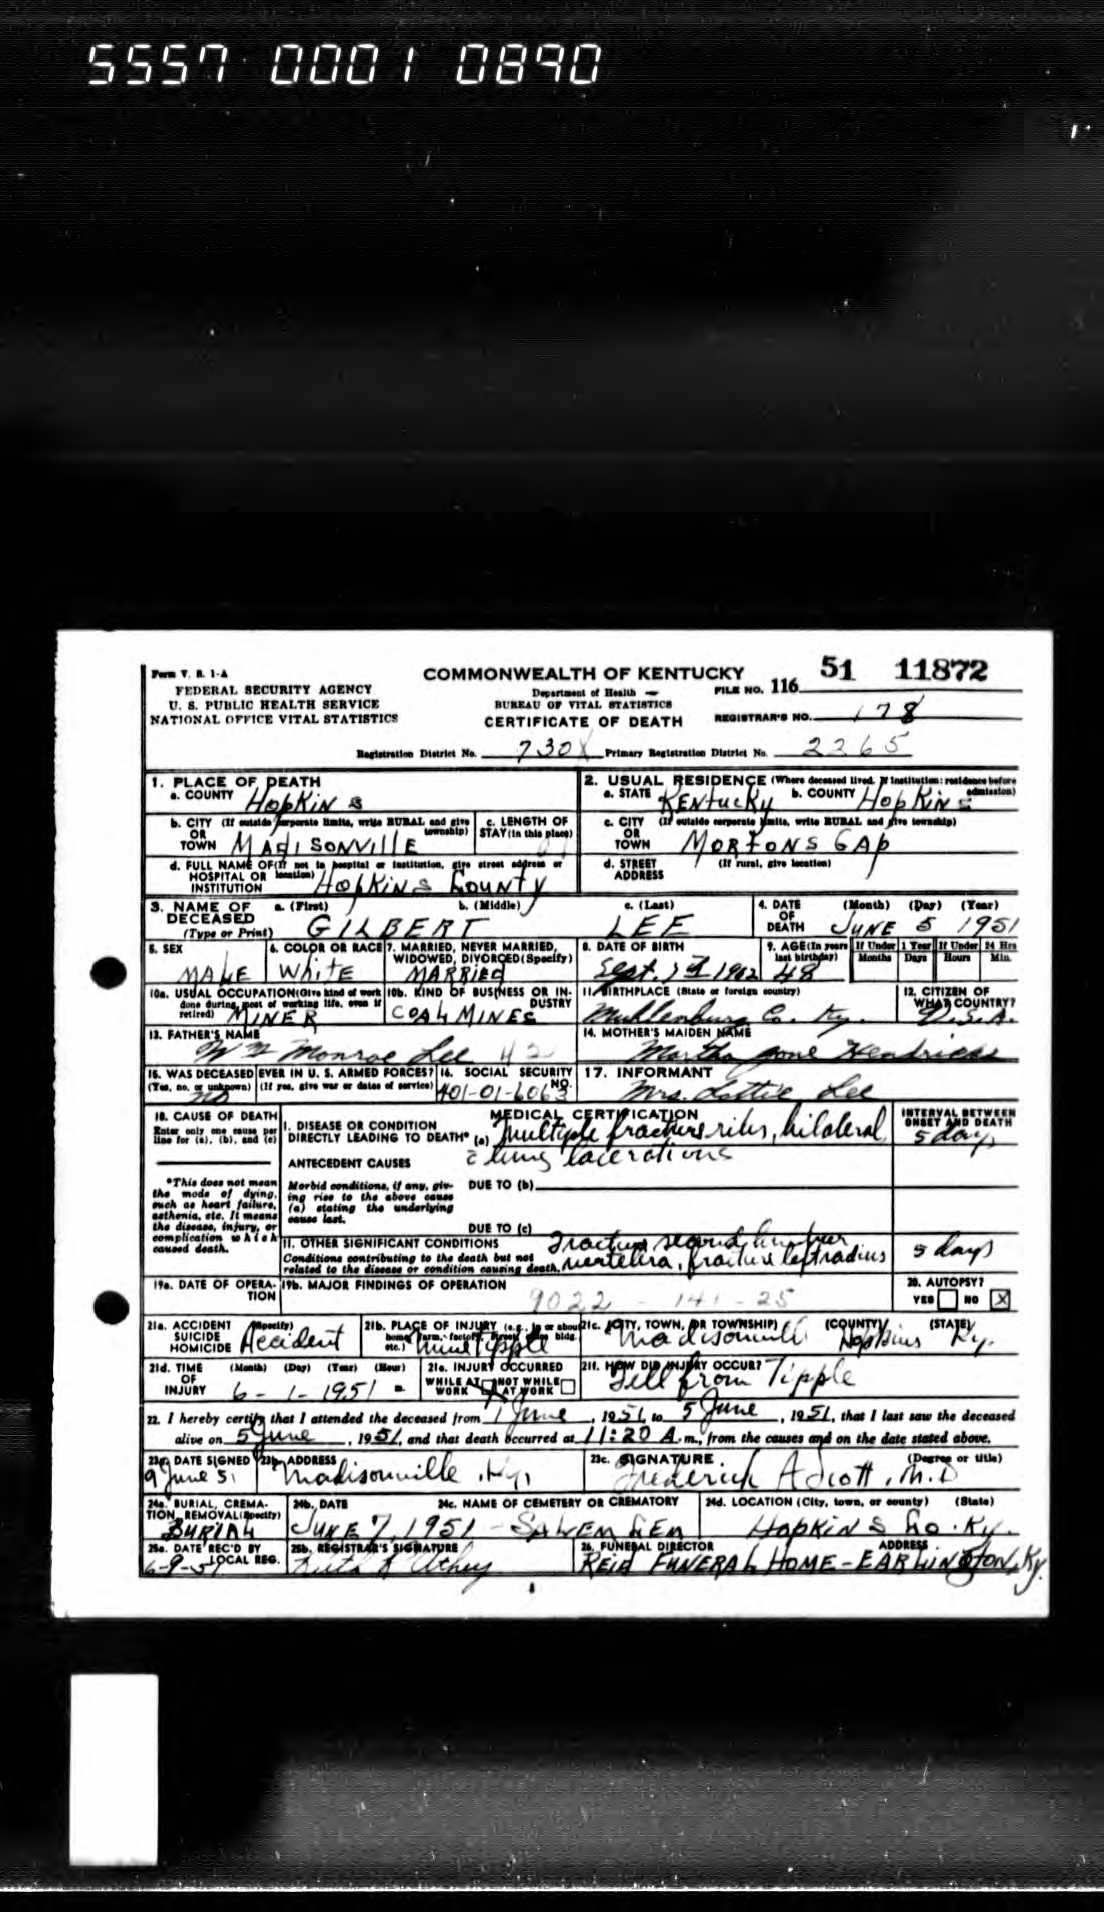 5557 0001 0890
Form V. S. 1-A
FEDERAL SECURITY AGENCY
U. S. PUBLIC HEALTH SERVICE
NATIONAL OFFICE VITAL STATISTICS
COMMONWEALTH OF KENTUCKY
Department of Health
BUREAU OF VITAL STATISTICS
CERTIFICATE OF DEATH
FILE NO. 116 51 11872
REGISTRAR'S NO. 178
Registration District No. 730X Primary Registration District No. 2265
1. PLACE OF DEATH
a. COUNTY HOPKINS
2. USUAL RESIDENCE (Where deceased lived. If institution: residence before admission)
a. STATE KENTUCKY b. COUNTY HOPKINS
b. CITY (If outside corporate limits, write RURAL and give township) OR TOWN MADISONVILLE
c. LENGTH OF STAY (in this place)
c. CITY (If outside corporate limits, write RURAL and give township) OR TOWN MORTONS GAP
d. FULL NAME OF (If not in hospital or institution, give street address or location) HOSPITAL OR INSTITUTION HOPKINS COUNTY
d. STREET ADDRESS (If rural, give location)
3. NAME OF DECEASED (Type or Print) a. (First) GILBERT b. (Middle) c. (Last) LEE
4. DATE OF DEATH (Month) (Day) (Year) JUNE 5 1951
5. SEX MALE
6. COLOR OR RACE WHITE
7. MARRIED, NEVER MARRIED, WIDOWED, DIVORCED (Specify) MARRIED
8. DATE OF BIRTH Sept. 1902
9. AGE (In years last birthday) 48 If Under 1 Year Months Days If Under 24 Hrs Hours Min.
10a. USUAL OCCUPATION (Give kind of work done during most of working life, even if retired) MINER
10b. KIND OF BUSINESS OR INDUSTRY COAL MINES
11. BIRTHPLACE (State or foreign country) Muhlenburg Co. Ky.
12. CITIZEN OF WHAT COUNTRY? U.S.A.
13. FATHER'S NAME Wm Monroe Lee 42
14. MOTHER'S MAIDEN NAME Martha Jane Hendricks
15. WAS DECEASED EVER IN U. S. ARMED FORCES? (Yes, no, or unknown) (If yes, give war or dates of service) NO
16. SOCIAL SECURITY NO. 401-01-6063
17. INFORMANT Mrs. Lottie Lee
18. CAUSE OF DEATH
Enter only one cause per line for (a), (b), and (c)
*This does not mean the mode of dying, such as heart failure, asthenia, etc. It means the disease, injury, or complication which caused death.
MEDICAL CERTIFICATION
INTERVAL BETWEEN ONSET AND DEATH
I. DISEASE OR CONDITION DIRECTLY LEADING TO DEATH* (a) Multiple fractures ribs, bilateral 5 days
c lung lacerations
ANTECEDENT CAUSES
Morbid conditions, if any, giving rise to the above cause (a) stating the underlying cause last.
DUE TO (b)
DUE TO (c)
II. OTHER SIGNIFICANT CONDITIONS
Conditions contributing to the death but not related to the disease or condition causing death.
Fracture second lumbar vertebra, fracture left radius 5 days
19a. DATE OF OPERATION
19b. MAJOR FINDINGS OF OPERATION
9022 - 141 - 25
20. AUTOPSY? YES NO X
21a. ACCIDENT SUICIDE HOMICIDE (Specify) Accident
21b. PLACE OF INJURY (e.g., in or about home, farm, factory, street, office bldg. etc.) Mine Tipple
21c. (CITY, TOWN, OR TOWNSHIP) (COUNTY) (STATE) Madisonville Hopkins Ky.
21d. TIME OF INJURY (Month) (Day) (Year) (Hour) 6-1-1951
21e. INJURY OCCURRED WHILE AT WORK NOT WHILE AT WORK
21f. HOW DID INJURY OCCUR? Fell from Tipple
22. I hereby certify that I attended the deceased from 1 June, 1951, to 5 June, 1951, that I last saw the deceased
alive on 5 June, 1951, and that death occurred at 11:20 A.m., from the causes and on the date stated above.
23a. DATE SIGNED 9 June 51
23b. ADDRESS Madisonville, Ky.
23c. SIGNATURE (Degree or title) Frederick A Scott, M.D
24a. BURIAL, CREMATION, REMOVAL (Specify) BURIAL
24b. DATE JUNE 7, 1951
24c. NAME OF CEMETERY OR CREMATORY SALEM CEM
24d. LOCATION (City, town, or county) (State) HOPKINS CO. KY.
25a. DATE REC'D BY LOCAL REG. 6-9-51
25b. REGISTRAR'S SIGNATURE Ruth
26. FUNERAL DIRECTOR ADDRESS REID FUNERAL HOME-EARLINGTON, Ky.